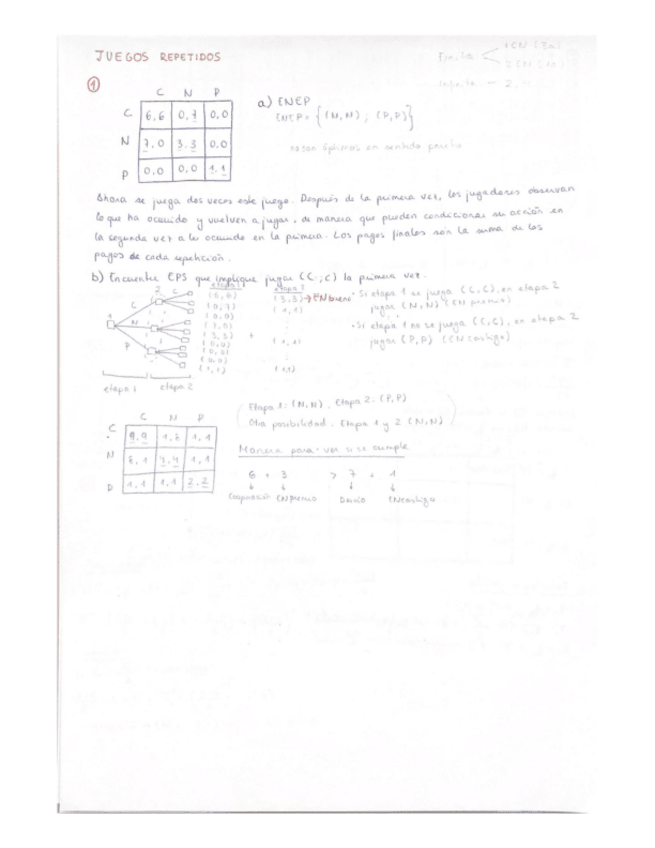 JUEGOS REPETIDOS
Finito
1
C N P
C 6,6 0,7 0,0
N 7,0 3,3 0,0
P 0,0 0,0 1,1
a) ENEP
ENEP = { (N,N) ; (P,P)}
no son óptimos en sentido pareto
Ahora se juega dos veces este juego. Después de la primera vez, los jugadores observan
lo que ha ocurrido y vuelven a jugar, de manera que pueden condicionar su acción en
la segunda vez a lo ocurrido en la primera. Los pagos finales son la suma de los
pagos de cada repetición.
b) Encuentre EPS que implique jugar (C,C) la primera vez.
1 2 C N P C
etapa 1
(6,6)
(0,7)
(0,0)
(7,0)
(3,3)
(0,0)
(0,0)
(0,0)
(1,1)
+
etapa 2
(3,3) → EN bueno
(1,1)
(1,1)
(1,1)
etapa 1 etapa 2
• Si etapa 1 se juega (C,C), en etapa 2
jugar (N,N) (EN premio)
• Si etapa 1 no se juega (C,C), en etapa 2
jugar (P,P) (EN castigo)
C N P
C 9,9 1,8 1,1
N 8,1 4,4 1,1
P 1,1 1,1 2,2
Etapa 1: (N,N). Etapa 2: (P,P)
Otra posibilidad. Etapa 1 y 2 (N,N)
Manera para ver si se cumple
6 + 3 > 7 + 1
Cooperación EN premio Desvío EN castigo